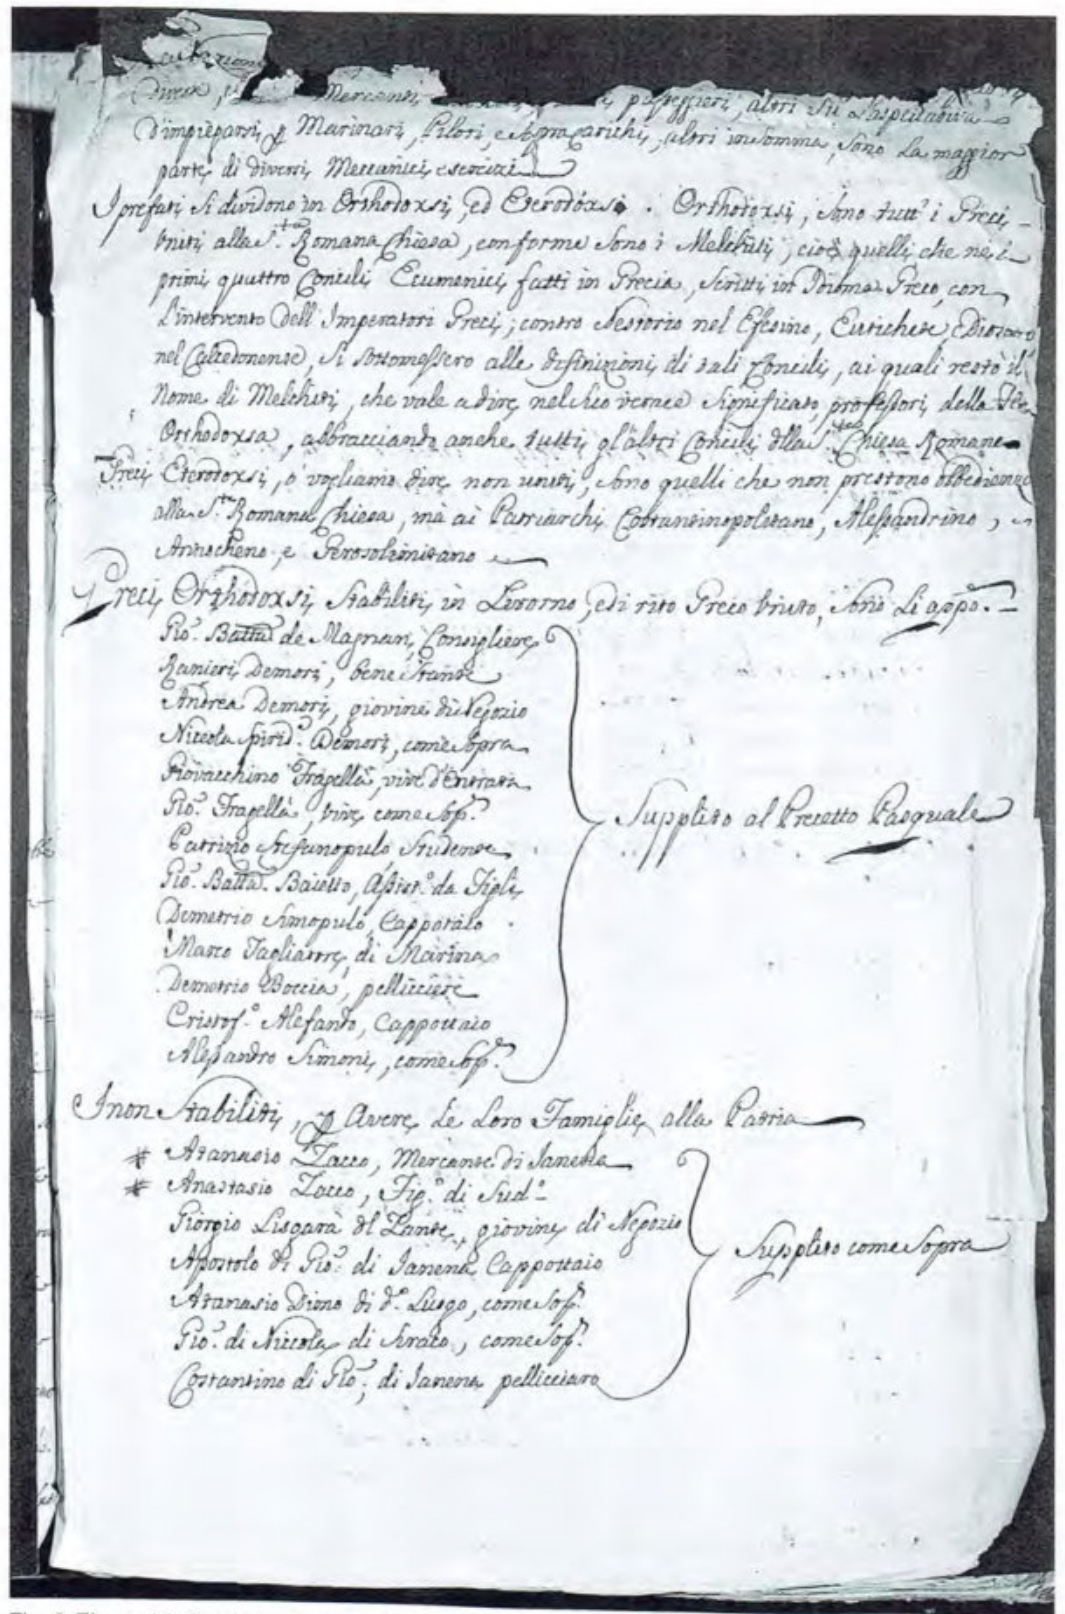 diverse, Mercanti passeggieri, altri su l'aspettativa
d'impiegarsi p Marinari, Piloti, e Sopracarichi, altri insomma, sono la maggior
parte, di diversi Meccanici esercizi
I prefati si dividono in Orthodoxsi, ed Eterodoxsi. Orthodoxsi, sono tutt' i Greci
Uniti alla S.ta Romana Chiesa, conforme sono i Melchiti, cioè quelli che ne i
primi quattro Concili Ecumenici fatti in Grecia, scritti in Idioma Greco, con
l'intervento dell'Imperatori Greci; contro Nestorio nel Efesino, Eutichete, e Dioscoro
nel Calcedonense, si sottomessero alle difinizioni di tali Concili, ai quali restò il
Nome di Melchiti, che vale a dire nel suo verace significato, professori della Fede
Orthodoxsa, abbracciando anche tutti gl'altri Concili dlla S.ta Chiesa Romana
Greci Eterodoxsi, o vogliamo dire non uniti, sono quelli che non prestono obbedienza
alla S.ta Romana Chiesa, mà ai Patriarchi Costantinopolitano, Alessandrino, e
Antiocheno, e Gerosolimitano
Greci Orthodoxsi Stabiliti in Livorno, e di rito Greco Unito, sono li appo.
Gio. Batta de Magnan, Consigliere
Ranieri Demori, bene stante
Andrea Demori, giovine di Negozio
Niccola Spirid. Demori, come sopra
Giovacchino Fragellà, vive d'Entrata
Gio. Fragellà, vive come Sop.a
Patrizio Stefanopulo Studente
Gio. Batta. Baietto, Assist.e da Figli
Demetrio Simopulo, Cappotaio
Marco Tagliatore, di Marina
Demetrio Boccia, pellicciere
Cristof.o Alefanto, Cappottaio
Alessandro Simoni, come Sop.a
Supplito al Precetto Pasquale
I non Stabiliti, p Avere le Loro Famiglie alla Patria
# Atanasio Zacco, Mercante di Janena
# Anastasio Zacco, Fig.o di Sud.o
Giorgio Lisgarà dl Zante, giovine di Negozio
Apostolo di Gio. di Janena Cappottaio
Atanasio Diono di d.o Luogo, come Sop.a
Gio. di Niccola di come Sop.a
Costantino di Gio. di Janena pellicciaro
Supplito come Sopra